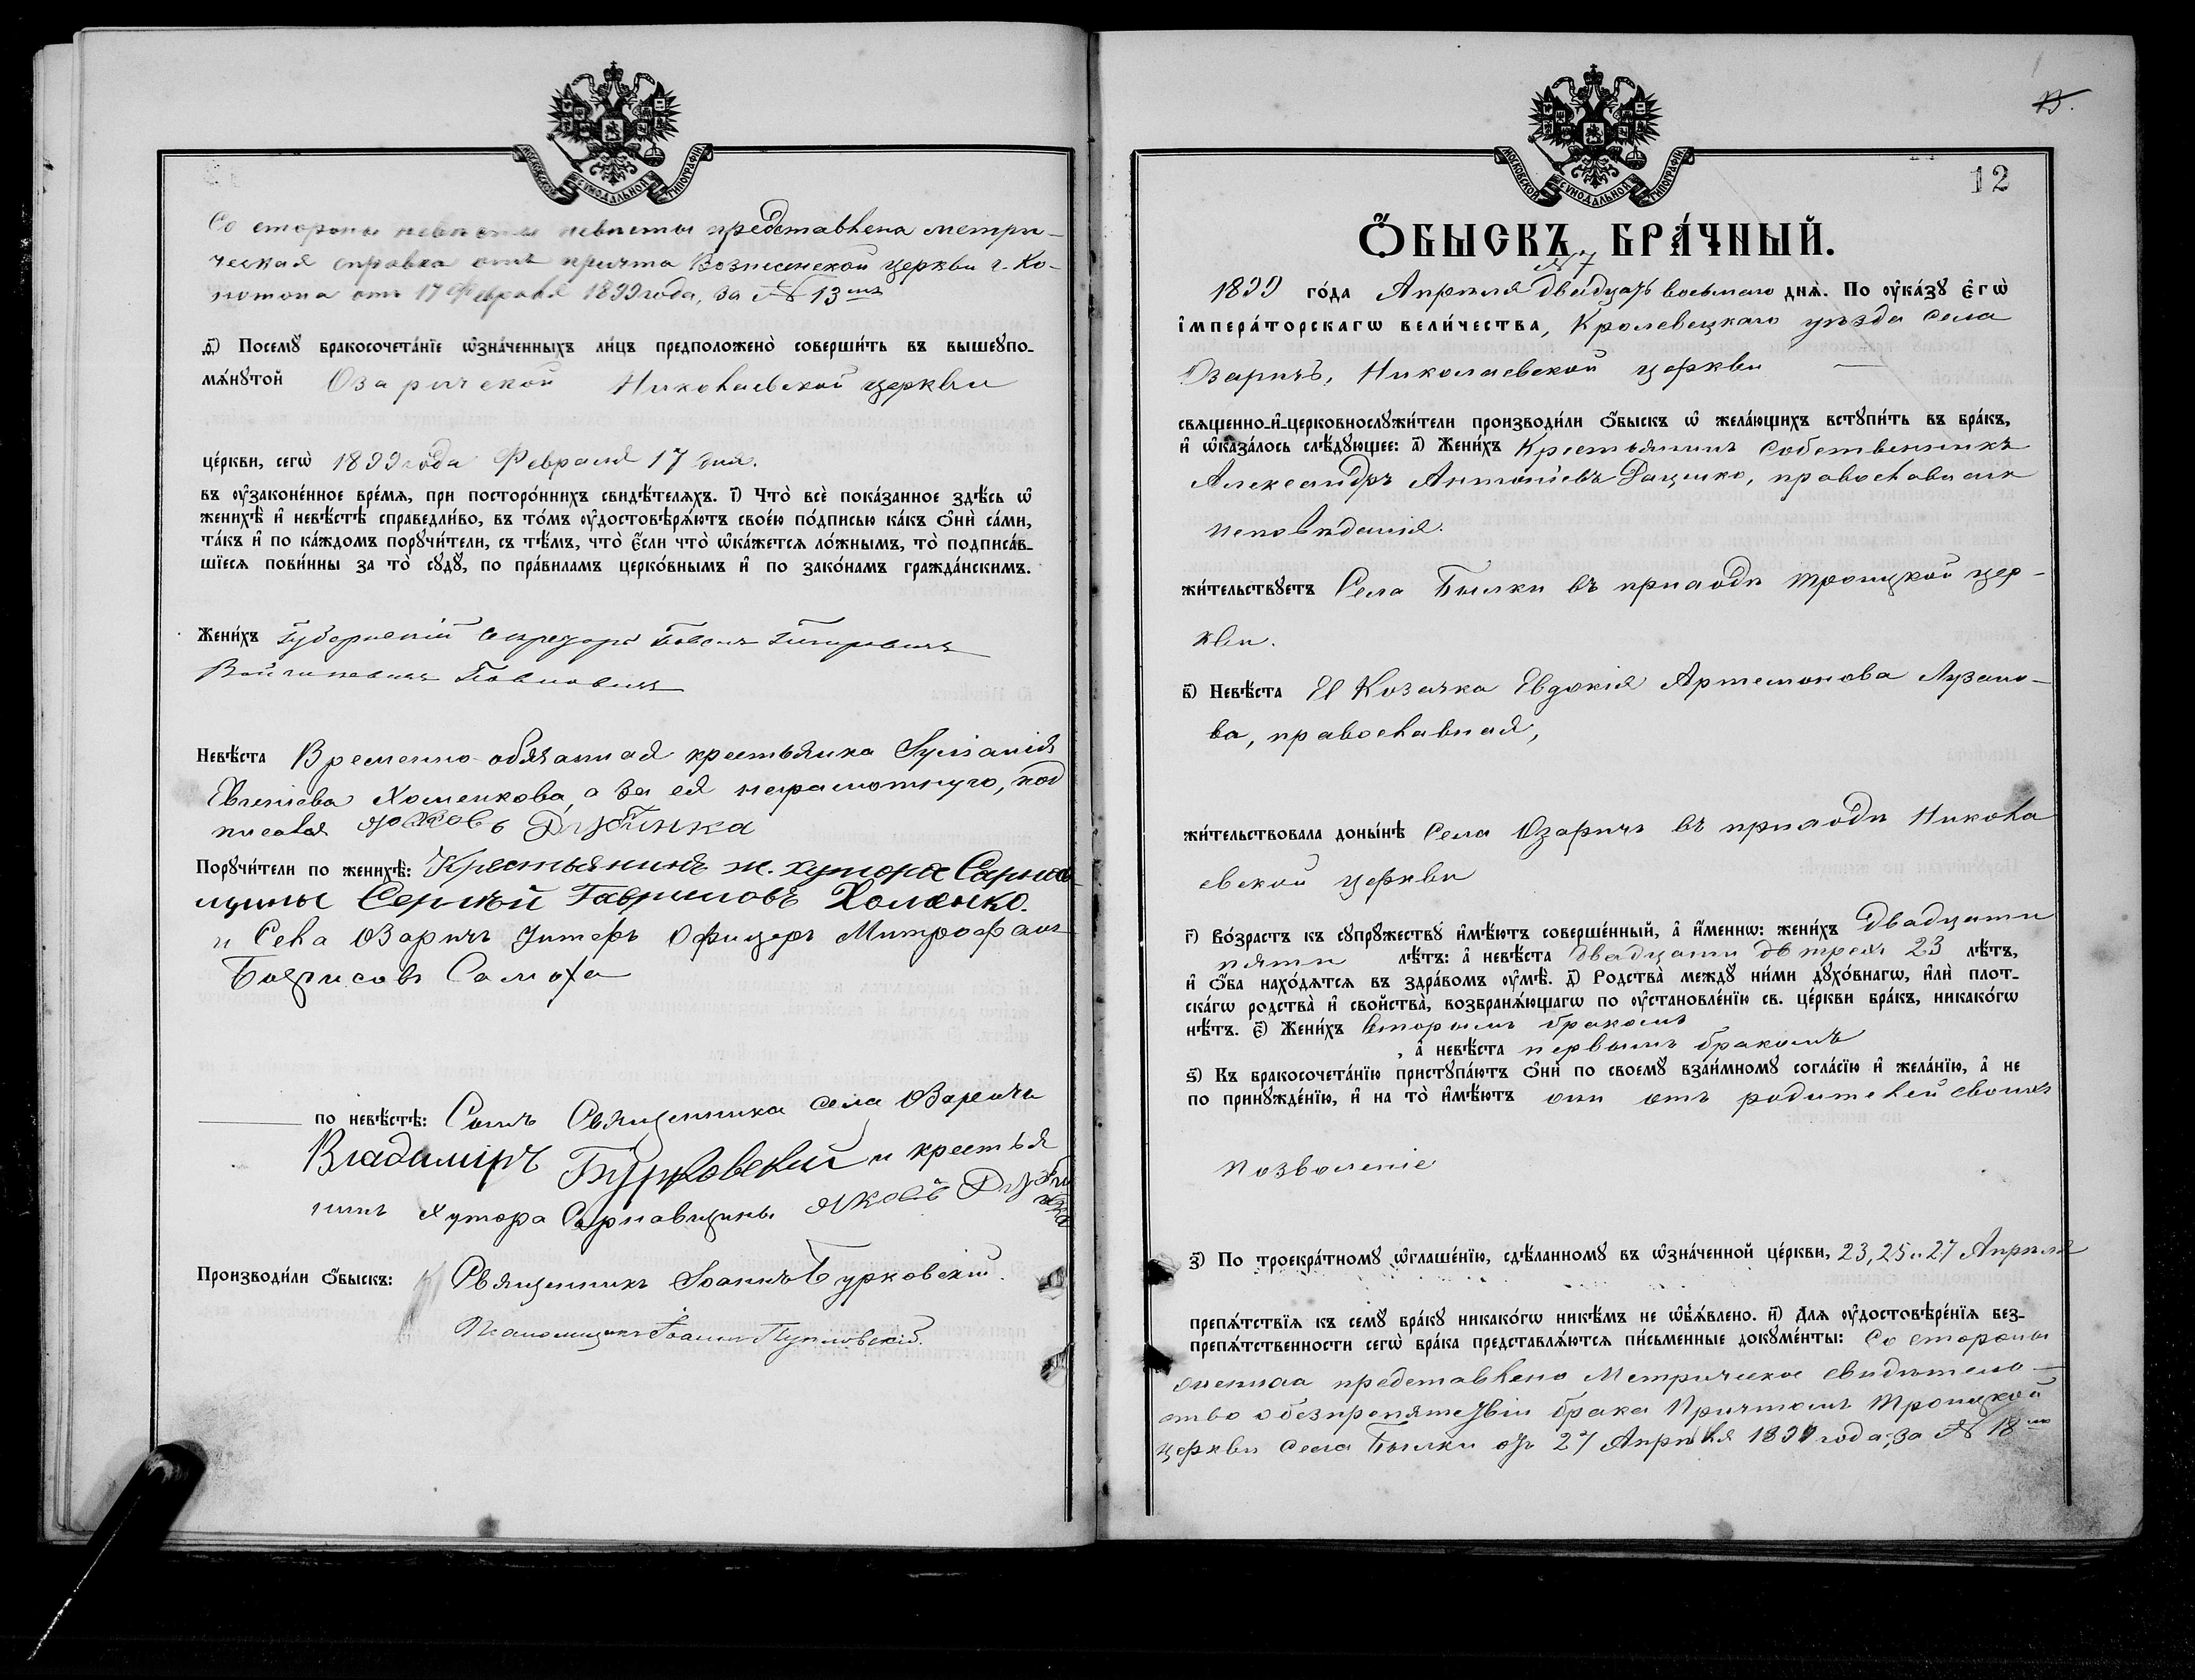 МОСКОВСКОЙ СѴНОДАЛЬНОЙ ТИПОГРАФІИ.
Со стороны невѣсты представлена метри-
ческая справка отъ причта Вознесенской церкви г. Ко-
нотопа отъ 17 Февраля 1899 года, за № 13мъ
д҃) Посемꙋ̀ бракосочета́нїе ѡ҆зна́ченныхъ ли́цъ предположено̀ соверши́ть въ вышеꙋпо-
мѧ́нꙋтой Озаричской Николаевской церкви
це́ркви, сегѡ̀ 1899 года Февраля 17 дня.
въ ᲂу҆законе́нное вре́мѧ, при посторо́ннихъ свидѣ́телѧхъ. і҃) Что̀ всѐ пока́занное здѣ́сь ѡ҆
женихѣ̀ и҆ невѣ́стѣ справедли́во, въ то́мъ ᲂу҆достовѣрѧ́ютъ свое́ю по́дписью ка́къ ѻ҆нѝ са́ми,
та́къ и҆ по ка́ждомъ порꙋчи́тели, съ тѣ́мъ, что̀ є҆́сли что̀ ѡ҆ка́жетсѧ ло́жнымъ, то̀ подписа́в-
шїесѧ пови́нны за то̀ сꙋдꙋ̀, по пра́виламъ церко́внымъ и҆ по зако́намъ гражда́нскимъ.
Жени́хъ Губернскій Секретарь
Невѣ́ста Временно-обязанная крестьянка
Хоменкова, а за ея неграмотную, под
писался Яковъ Дзюбинка
Порꙋчи́тели по женихѣ̀: Крестьянинъ ж. хутора Сарнав
щины Сергѣй Гавриловъ Хоменко.
и Села Озаричъ Унтеръ Офицеръ Митрофанъ
Борисовъ Самоха
по невѣ́стѣ: Сынъ Священника села Озаричъ
Владиміръ Бурковскій и крестья
нинъ хутора Сарнавщины Яковъ Дзюбинка
Производи́ли ѻ҆́быскъ: Священникъ Іоаннъ Бурковскій.
Псаломщикъ Іоаннъ
13.
МОСКОВСКОЙ СѴНОДАЛЬНОЙ ТИПОГРАФІИ.
12
Ѻ҆́БЫСКЪ БРА́ЧНЫЙ.
№ 7
1899 го́да Апрѣля двадцать восьмаго днѧ̀. По ᲂу҆ка́зꙋ Є҆гѡ̀
І҆мпера́торскагѡ Вели́чества, Кролевецкаго уѣзда села
Озаричъ, Николаевской церкви
свѧщенно-и҆-церковнослꙋжи́тели производи́ли ѻ҆́быскъ ѡ҆ жела́ющихъ встꙋпи́ть въ бра́къ,
и҆ ѡ҆каза́лось слѣ́дꙋющее: а҃) Жени́хъ Крестьянинъ собственникъ
Александръ Антоніевъ Рацико, православнаго
исповѣданія.
жи́тельствꙋетъ Села Былки въ приходѣ Троицкой цер-
кви.
в҃) Невѣ́ста Козачка Евдокія Артемонова Лузано-
ва, православная,
жи́тельствовала доны́нѣ села Озаричъ въ приходѣ Никола
евской церкви
г҃) Во́зрастъ къ сꙋпрꙋ́жествꙋ и҆мѣ́ютъ соверше́нный, а҆ и҆́меннѡ: жени́хъ двадцати
пяти лѣ́тъ: а҆ невѣ́ста двадцати трехъ 23 лѣ́тъ,
и҆ ѻ҆́ба нахо́дѧтсѧ въ здра́вомъ ᲂу҆мѣ̀. д҃) Родства̀ междꙋ̀ ни́ми дꙋхо́внагѡ, и҆лѝ плот-
ска́гѡ родства̀ и҆ свойства̀, возбранѧ́ющагѡ по ᲂу҆становле́нїю св. це́ркви бра́къ, никако́гѡ
нѣ́тъ. є҃) Жени́хъ вторымъ бракомъ
, а҆ невѣ́ста первымъ бракомъ
ѕ҃) Къ бракосочета́нїю пристꙋпа́ютъ ѻ҆нѝ по своемꙋ̀ взаи́мномꙋ согла́сїю и҆ жела́нїю, а҆ не
по принꙋжде́нїю, и҆ на то̀ и҆мѣ́ютъ они отъ родителей своихъ
позволеніе
з҃) По троекра́тномꙋ ѡ҆глаше́нїю, сдѣ́ланномꙋ въ ѡ҆зна́ченной це́ркви, 23, 25 и 27 Апрѣля
препѧ́тствїѧ къ семꙋ̀ бра́кꙋ никако́гѡ никѣ́мъ не ѡ҆б̾ѧ́влено. и҃) Длѧ ᲂу҆достовѣре́нїѧ без-
препѧ́тственности сегѡ̀ бра́ка представлѧ́ютсѧ пи́сьменные докꙋме́нты: Со стороны
жениха представлено Метрическое свидѣтель-
ство о безпрепятствіи брака Причтомъ Троицкой
церкви села Былки отъ 27 Апрѣля 1899 года, за № 18мъ